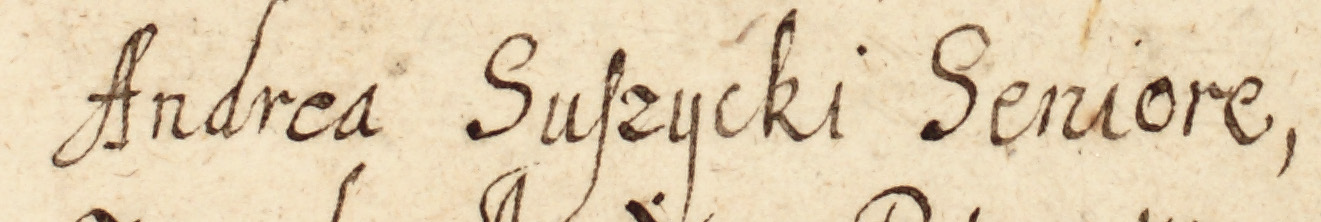 Andrea Suſzycki Seniore,